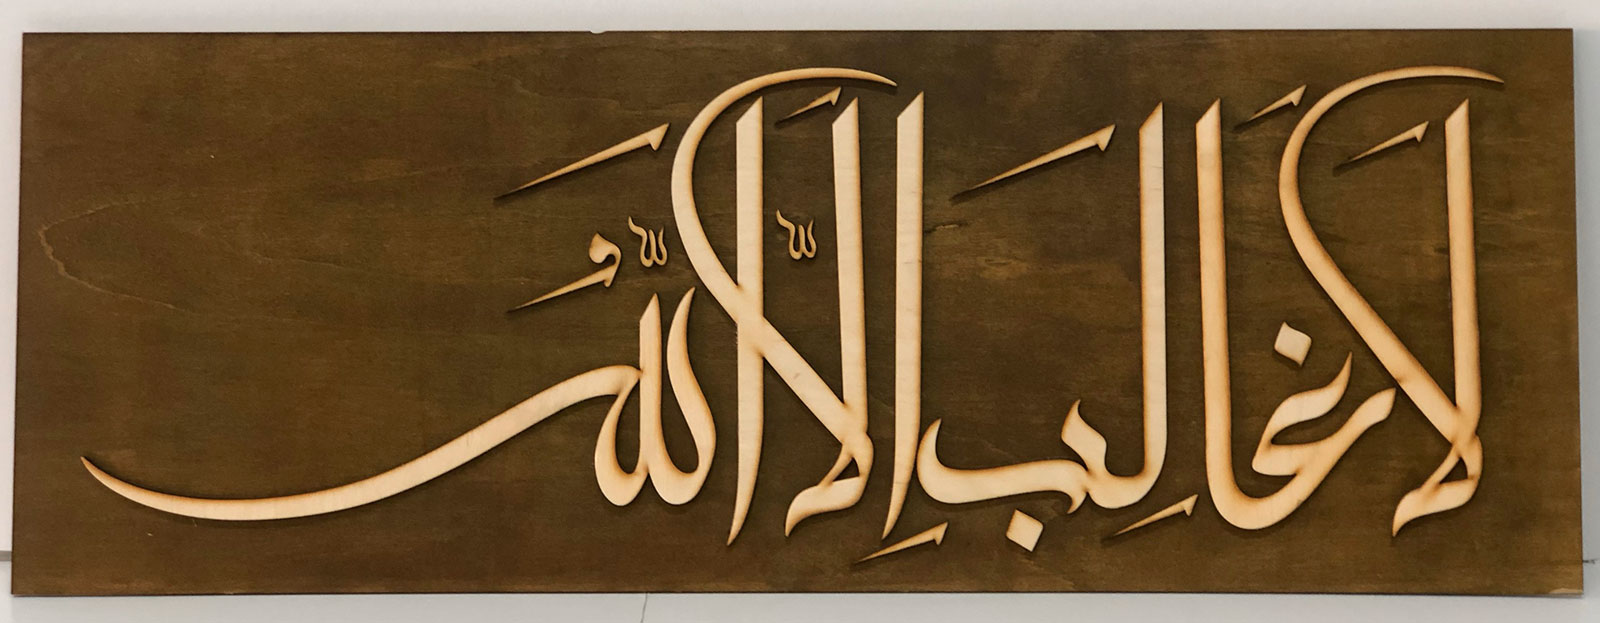 لَا غَالِبَ إِلَّا اللّٰهُ